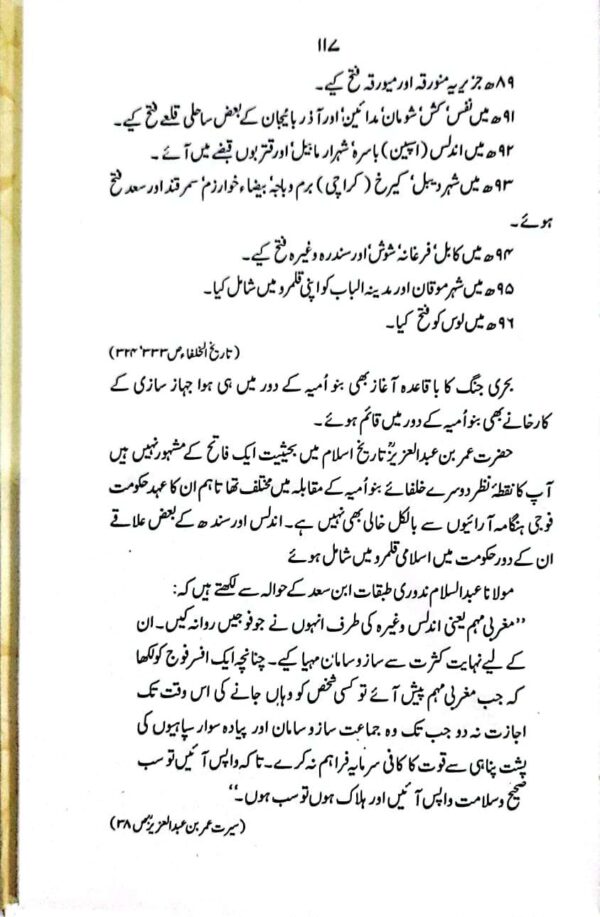 ۱۱۷
۸۹ھ جزیریہ منورقہ اور میورقہ فتح کیے۔
۹۱ھ میں نفس' کش' شومان' مدائین' اور آذر بائیجان کے بعض ساحلی قلعے فتح کیے۔
۹۲ھ میں اندلس (اسپین) باسرہ' شہرار مابیل' اور قتربوں قبضے میں آئے۔
۹۳ھ میں شہر دیبل' کیرخ (کراچی) برم و باجہ' بیضاء خوارزم' سمرقند اور سعد فتح
ہوئے۔
۹۴ھ میں کابل' فرغانہ' شوش' اور سندرہ وغیرہ فتح کیے۔
۹۵ھ میں شہر موقان اور مدینہ الباب کو اپنی قلمرو میں شامل کیا۔
۹۶ھ میں لوس کو فتح کیا۔
(تاریخ الخلفاء ص ۳۳۳' ۳۲۴)
بحری جنگ کا باقاعدہ آغاز بھی بنو اُمیہ کے دور میں ہی ہوا جہاز سازی کے
کارخانے بھی بنو اُمیہ کے دور میں قائم ہوئے۔
حضرت عمر بن عبدالعزیزؒ تاریخ اسلام میں بحیثیت ایک فاتح کے مشہور نہیں ہیں
آپ کا نقطۂ نظر دوسرے خلفائے بنو اُمیہ کے مقابلہ میں مختلف تھا تاہم ان کا عہد حکومت
فوجی ہنگامہ آرائیوں سے بالکل خالی بھی نہیں ہے۔ اندلس اور سندھ کے بعض علاقے
ان کے دور حکومت میں اسلامی قلمرو میں شامل ہوئے
مولانا عبدالسلام ندوری طبقات ابن سعد کے حوالہ سے لکھتے ہیں کہ:
''مغربی مہم یعنی اندلس وغیرہ کی طرف انہوں نے جو فوجیں روانہ کیں۔ ان
کے لیے نہایت کثرت سے ساز و سامان مہیا کیے۔ چنانچہ ایک افسر فوج کو لکھا
کہ جب مغربی مہم پیش آئے تو کسی شخص کو وہاں جانے کی اس وقت تک
اجازت نہ دو جب تک وہ جماعت ساز و سامان اور پیادہ سوار سپاہیوں کی
پشت پناہی سے قوت کا کافی سرمایہ فراہم نہ کرے۔ تاکہ واپس آئیں تو سب
صحیح و سلامت واپس آئیں اور ہلاک ہوں تو سب ہوں۔''
(سیرت عمر بن عبدالعزیزؒ ص ۳۸)